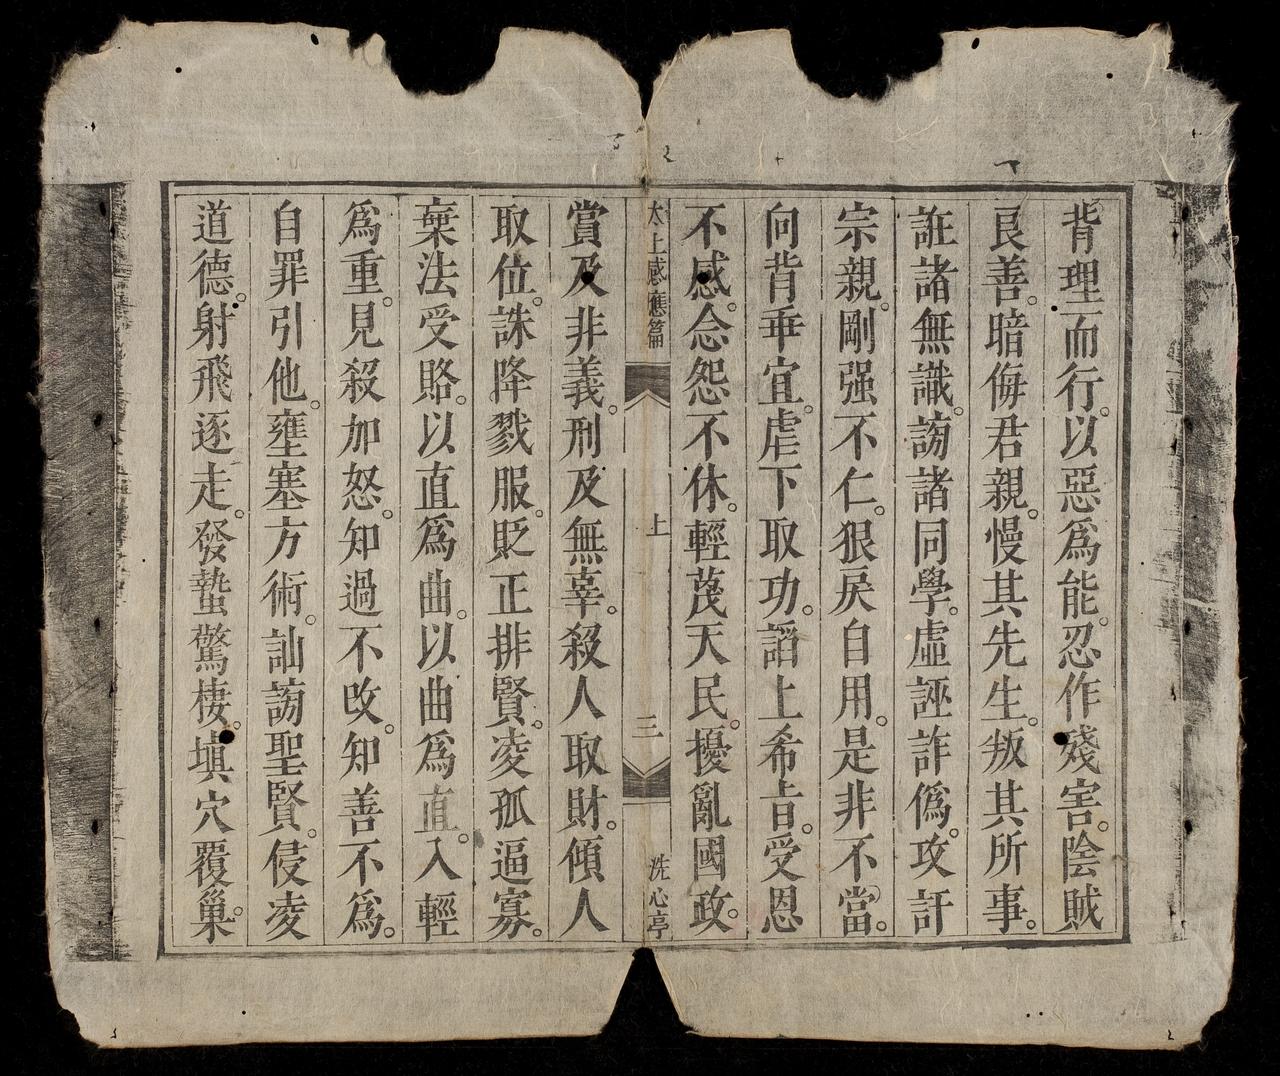 背理而行。以惡爲能。忍作殘害。陰賊
良善。暗侮君親。慢其先生。叛其所事。
誑諸無識。謗諸同學。虛誣詐僞。攻訐
宗親。剛强不仁。狠戾自用。是非不當。
向背乖宜。虐下取功。謟上希旨。受恩
不感。念怨不休。輕蔑天民。擾亂國政。
太上感應篇
上
三
洗心亭
賞及非義。刑及無辜。殺人取財。傾人
取位。誅降戮服。貶正排賢。凌孤逼寡。
棄法受賂。以直爲曲。以曲爲直。入輕
爲重。見殺加怒。知過不改。知善不爲。
自罪引他。壅塞方術。訕謗聖賢。侵凌
道德。射飛逐走。發蟄驚棲。塡穴覆巢。